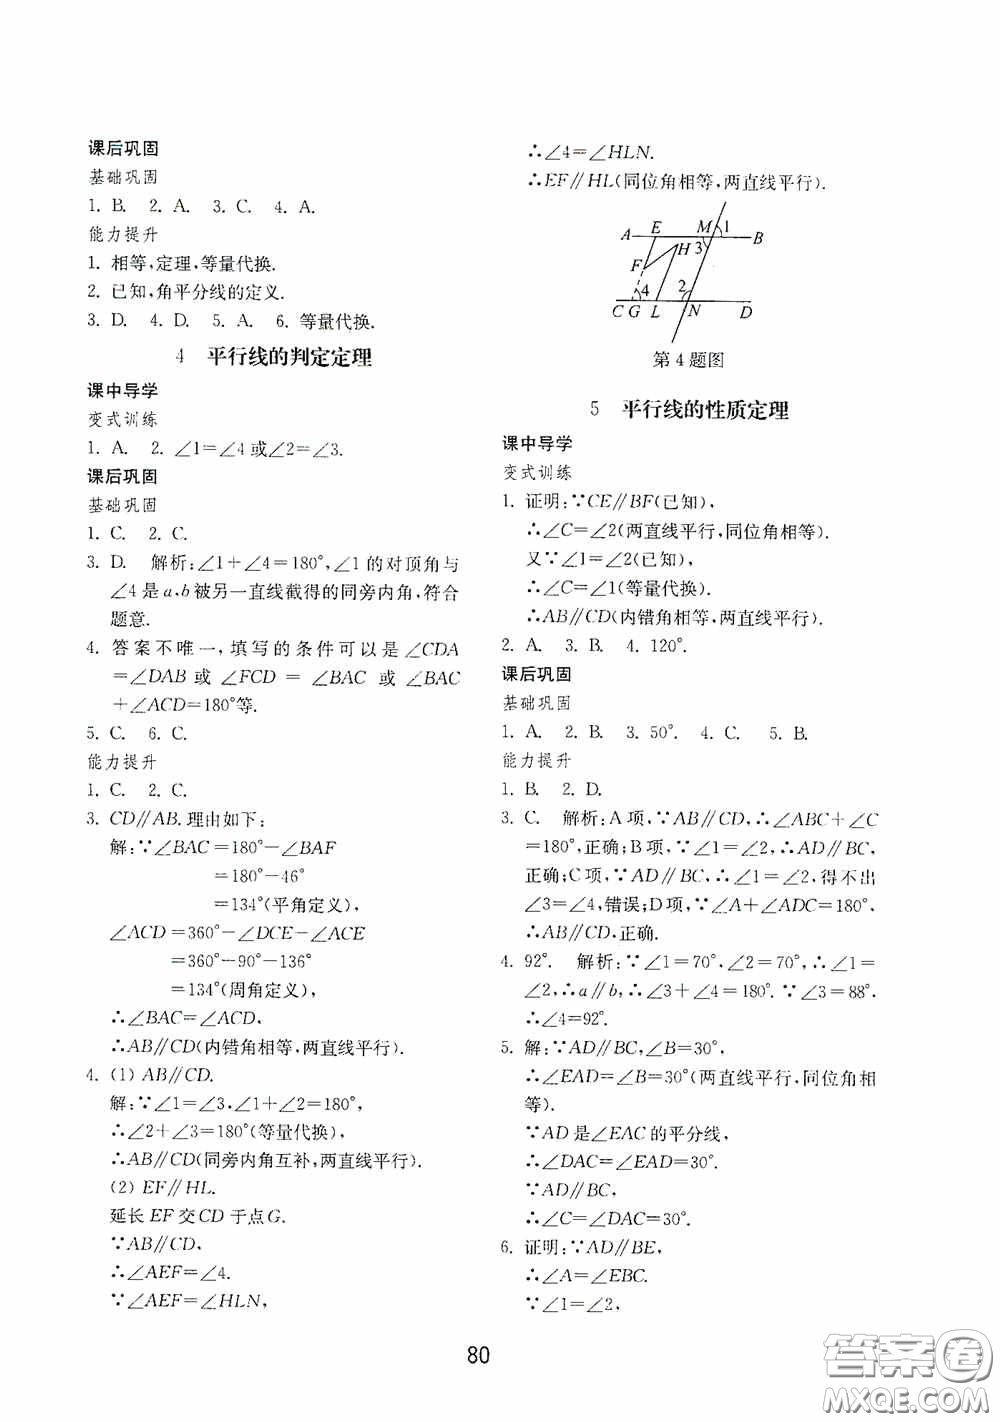 课后巩固
基础巩固
1. B. 2. A. 3. C. 4. A.
能力提升
1. 相等,定理,等量代换.
2. 已知,角平分线的定义.
3. D. 4. D. 5. A. 6. 等量代换.
4 平行线的判定定理
课中导学
变式训练
1. A. 2. ∠1=∠4 或∠2=∠3.
课后巩固
基础巩固
1. C. 2. C.
3. D. 解析:∠1+∠4=180°,∠1 的对顶角与
∠4 是 a,b 被另一直线截得的同旁内角,符合
题意.
4. 答案不唯一,填写的条件可以是∠CDA
=∠DAB 或 ∠FCD = ∠BAC 或 ∠BAC
+∠ACD=180°等.
5. C. 6. C.
能力提升
1. C. 2. C.
3. CD∥AB.理由如下:
解:∵∠BAC=180°-∠BAF
=180°-46°
=134°(平角定义),
∠ACD=360°-∠DCE-∠ACE
=360°-90°-136°
=134°(周角定义),
∴∠BAC=∠ACD,
∴AB∥CD(内错角相等,两直线平行).
4. (1) AB∥CD.
解:∵∠1=∠3,∠1+∠2=180°,
∴∠2+∠3=180°(等量代换),
∴AB∥CD(同旁内角互补,两直线平行).
(2) EF∥HL.
延长 EF 交 CD 于点 G.
∵AB∥CD,
∴∠AEF=∠4.
∵∠AEF=∠HLN,
∴∠4=∠HLN.
∴EF∥HL(同位角相等,两直线平行).
A E M 1 B
H 3
F
4 2
C G L N D
第 4 题图
5 平行线的性质定理
课中导学
变式训练
1. 证明:∵CE∥BF(已知),
∴∠C=∠2(两直线平行,同位角相等).
又∵∠1=∠2(已知),
∴∠C=∠1(等量代换).
∴AB∥CD(内错角相等,两直线平行).
2. A. 3. B. 4. 120°.
课后巩固
基础巩固
1. A. 2. B. 3. 50°. 4. C. 5. B.
能力提升
1. B. 2. D.
3. C. 解析:A 项,∵AB∥CD,∴∠ABC+∠C
=180°,正确;B 项,∵∠1=∠2,∴AD∥BC,
正确;C 项,∵AD∥BC,∴∠1=∠2,得不出
∠3=∠4,错误;D 项,∵∠A+∠ADC=180°,
∴AB∥CD,正确.
4. 92°. 解析:∵∠1=70°,∠2=70°,∴∠1=
∠2,∴a∥b,∴∠3+∠4=180°.∵∠3=88°,
∴∠4=92°.
5. 解:∵AD∥BC,∠B=30°,
∴∠EAD=∠B=30°(两直线平行,同位角相
等).
∵AD 是∠EAC 的平分线,
∴∠DAC=∠EAD=30°.
∵AD∥BC,
∴∠C=∠DAC=30°.
6. 证明:∵AD∥BE,
∴∠A=∠EBC.
∵∠1=∠2,
80
答案圈
MXQE.COM